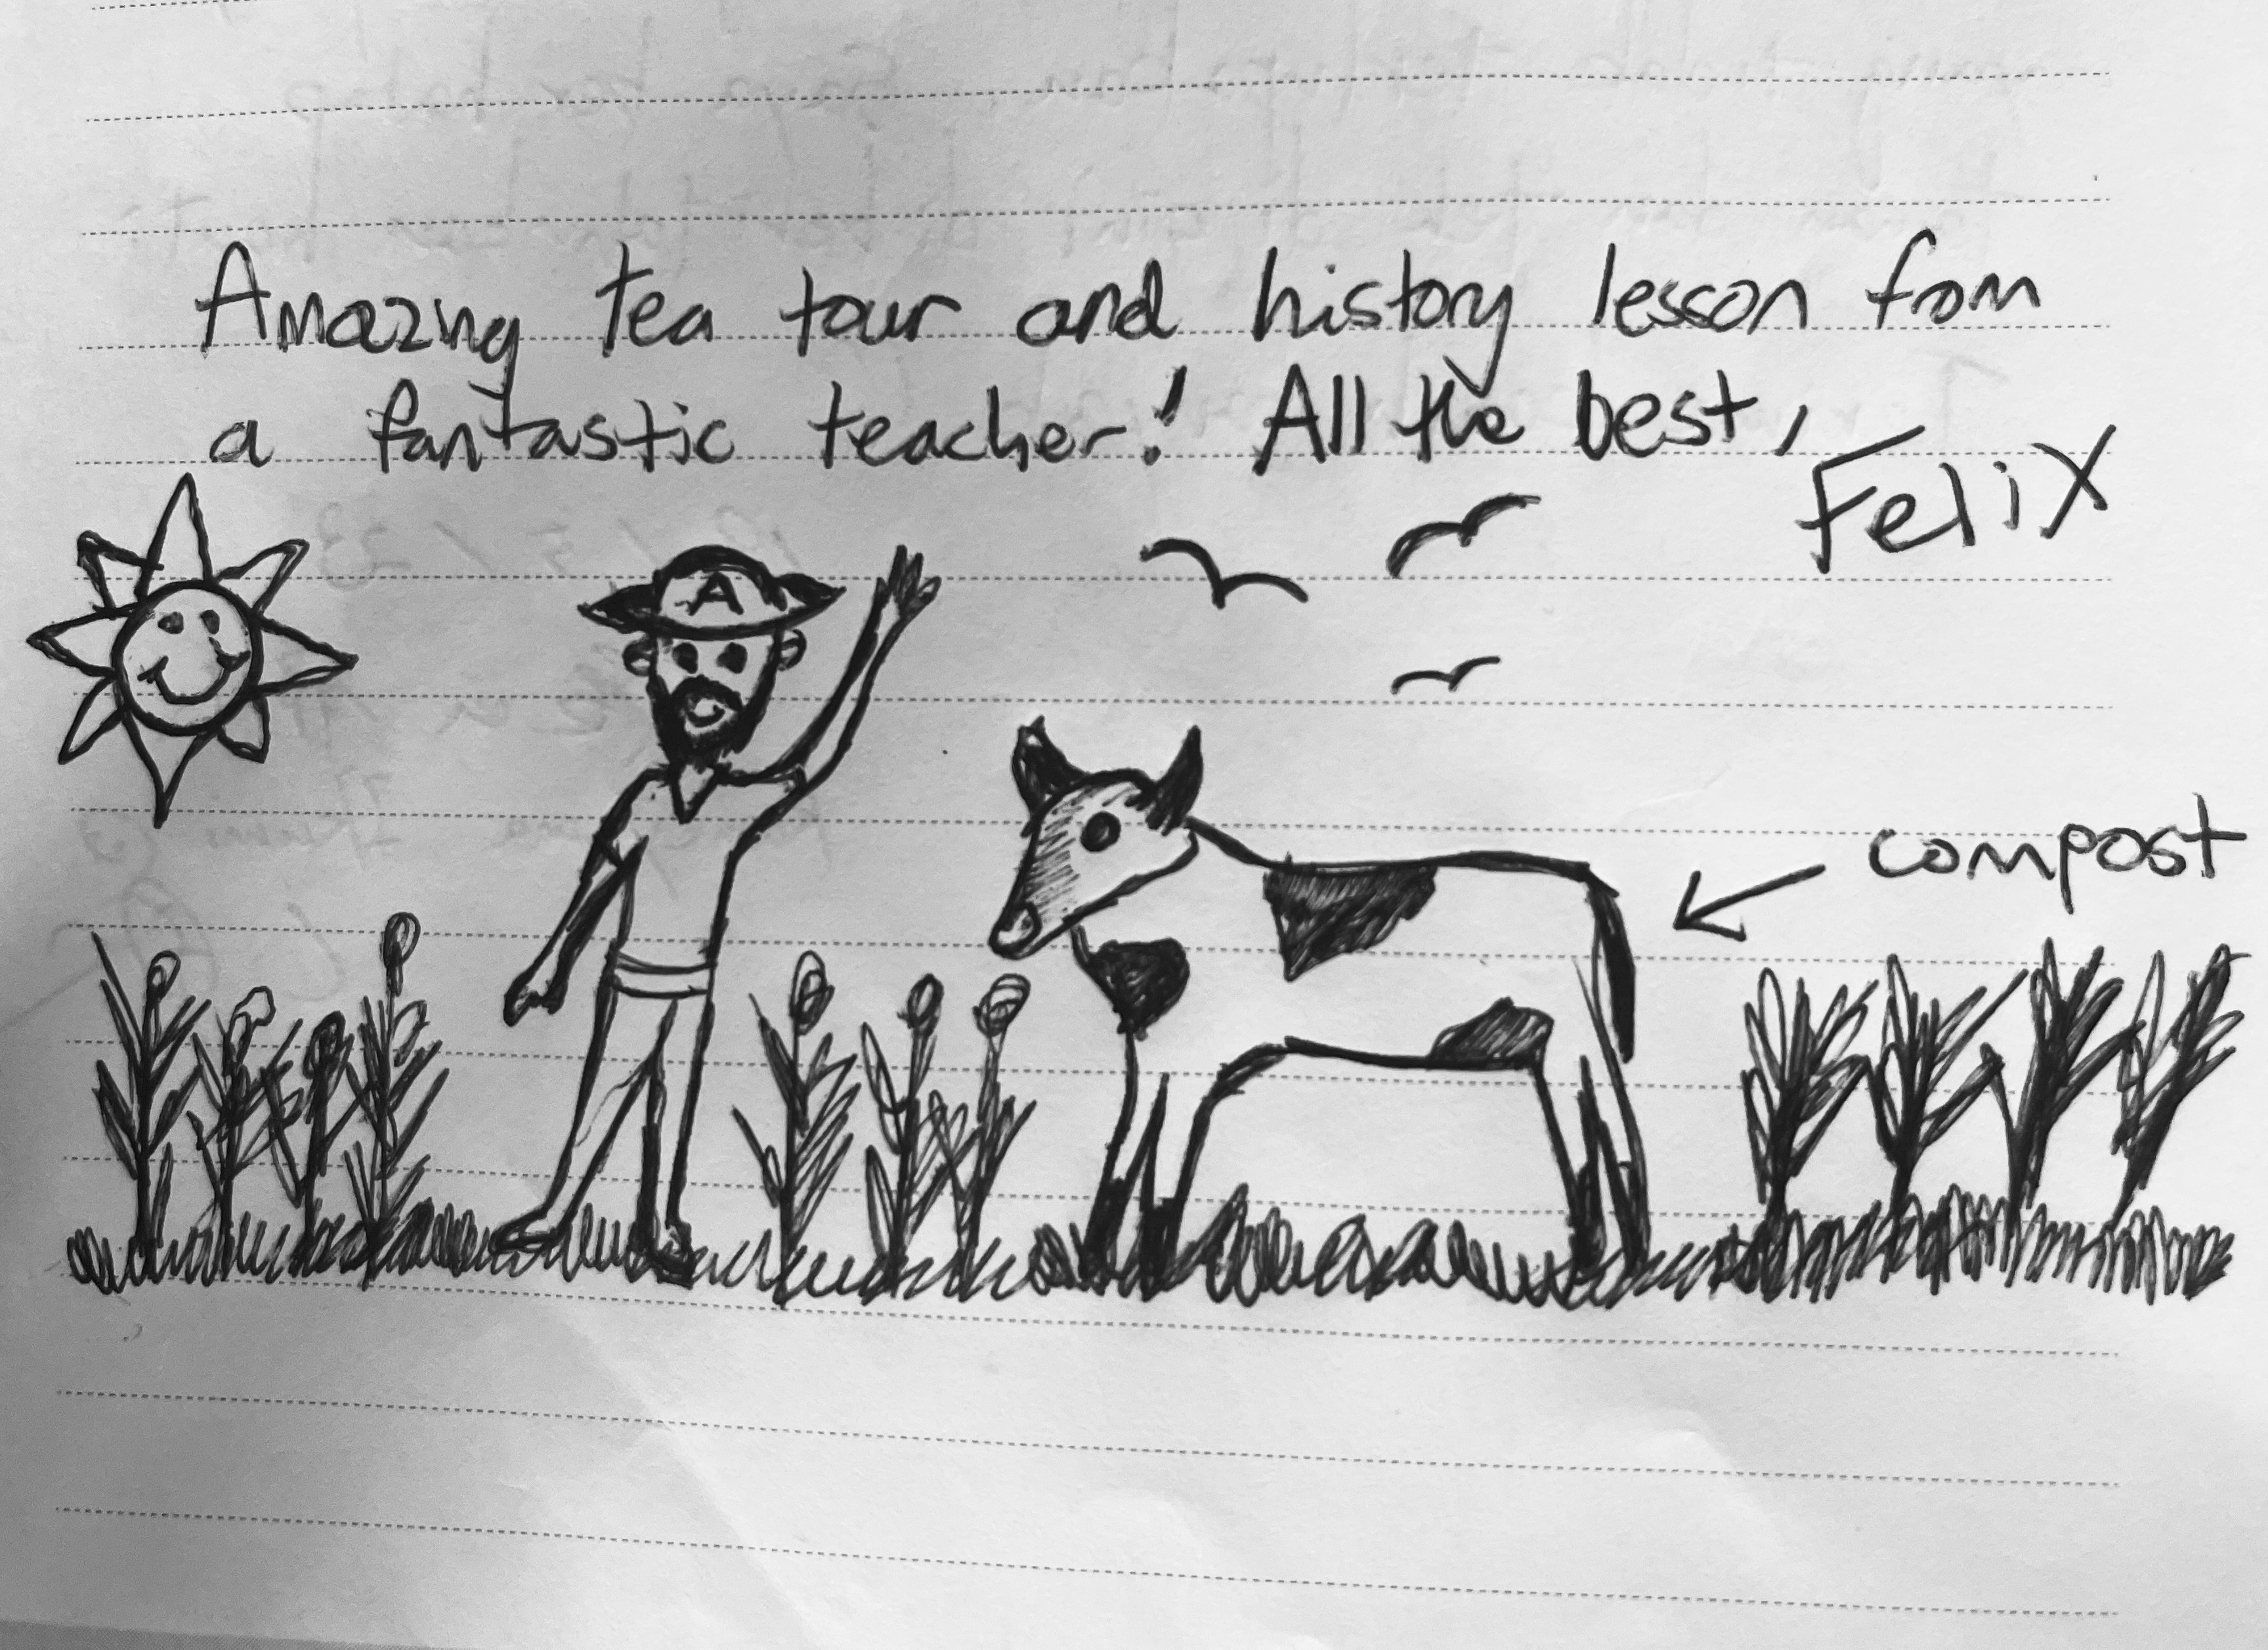 Amazing tea tour and history lesson from
a fantastic teacher! All the best,
Felix
A
compost